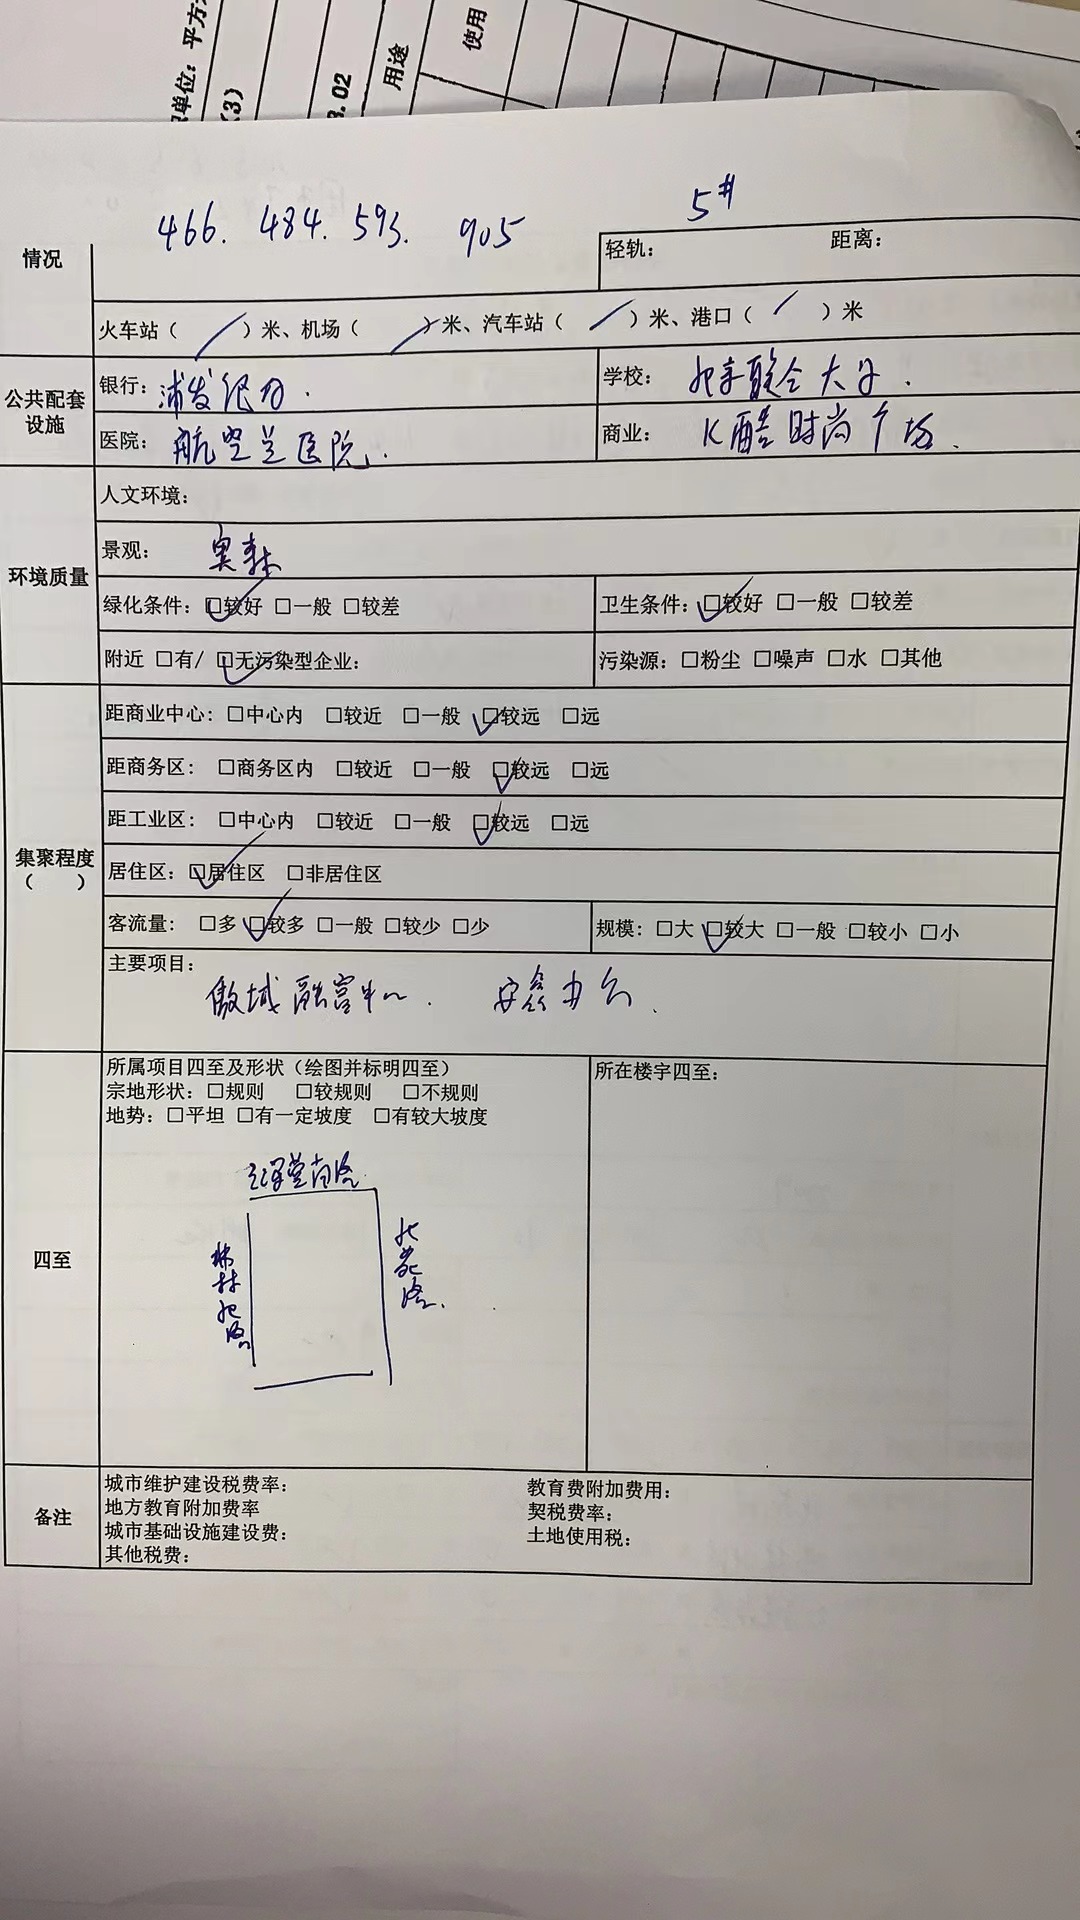 单位：平方
(3)
3.02
用途
使用
466. 484. 593. 905
5#
情况
轻轨： 距离：
火车站（ / ）米、机场（ / ）米、汽车站（ / ）米、港口（ / ）米
公共配套设施
银行：浦发银行.
学校：北京联合大学.
医院：航空总医院.
商业：K酷时尚广场.
环境质量
人文环境：
景观：奥森
绿化条件：☑较好 □一般 □较差
卫生条件：☑较好 □一般 □较差
附近 □有/ ☑无污染型企业：
污染源：□粉尘 □噪声 □水 □其他
集聚程度
（ ）
距商业中心：□中心内 □较近 □一般 ☑较远 □远
距商务区：□商务区内 □较近 □一般 ☑较远 □远
距工业区：□中心内 □较近 □一般 ☑较远 □远
居住区：☑居住区 □非居住区
客流量：□多 ☑较多 □一般 □较少 □少
规模：□大 ☑较大 □一般 □较小 □小
主要项目：
傲城融富中心.
四至
所属项目四至及形状（绘图并标明四至）
宗地形状：□规则 □较规则 □不规则
地势：□平坦 □有一定坡度 □有较大坡度
北苑路.
所在楼宇四至：
备注
城市维护建设税费率：
教育费附加费用：
地方教育附加费率
契税费率；
城市基础设施建设费：
土地使用税：
其他税费：